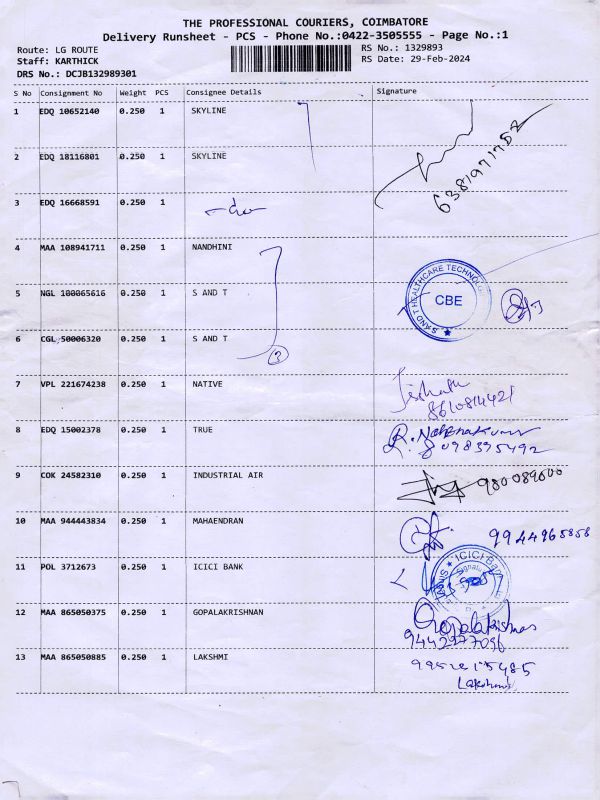 THE PROFESSIONAL COURIERS, COIMBATORE
Delivery Runsheet - PCS - Phone No.:0422-3505555 - Page No.:1
Route: LG ROUTE
Staff: KARTHICK
DRS No.: DCJB132989301
RS No.: 1329893
RS Date: 29-Feb-2024
S No Consignment No Weight PCS Consignee Details Signature
1 EDQ 10652140 0.250 1 SKYLINE
6381971752
2 EDQ 18116801 0.250 1 SKYLINE
3 EDQ 16668591 0.250 1
4 MAA 108941711 0.250 1 NANDHINI
S AND T HEALTHCARE TECHNOLOG
CBE
5 NGL 100065616 0.250 1 S AND T
6 CGL 50006320 0.250 1 S AND T
3
7 VPL 221674238 0.250 1 NATIVE
8610814421
8 EDQ 15002378 0.250 1 TRUE
9 COK 24582310 0.250 1 INDUSTRIAL AIR
10 MAA 944443834 0.250 1 MAHAENDRAN
9944965858
11 POL 3712673 0.250 1 ICICI BANK
ICICI Bank
Signatu
12 MAA 865050375 0.250 1 GOPALAKRISHNAN
Gopalakrishnan
9442977096
13 MAA 865050885 0.250 1 LAKSHMI
Lakshmi